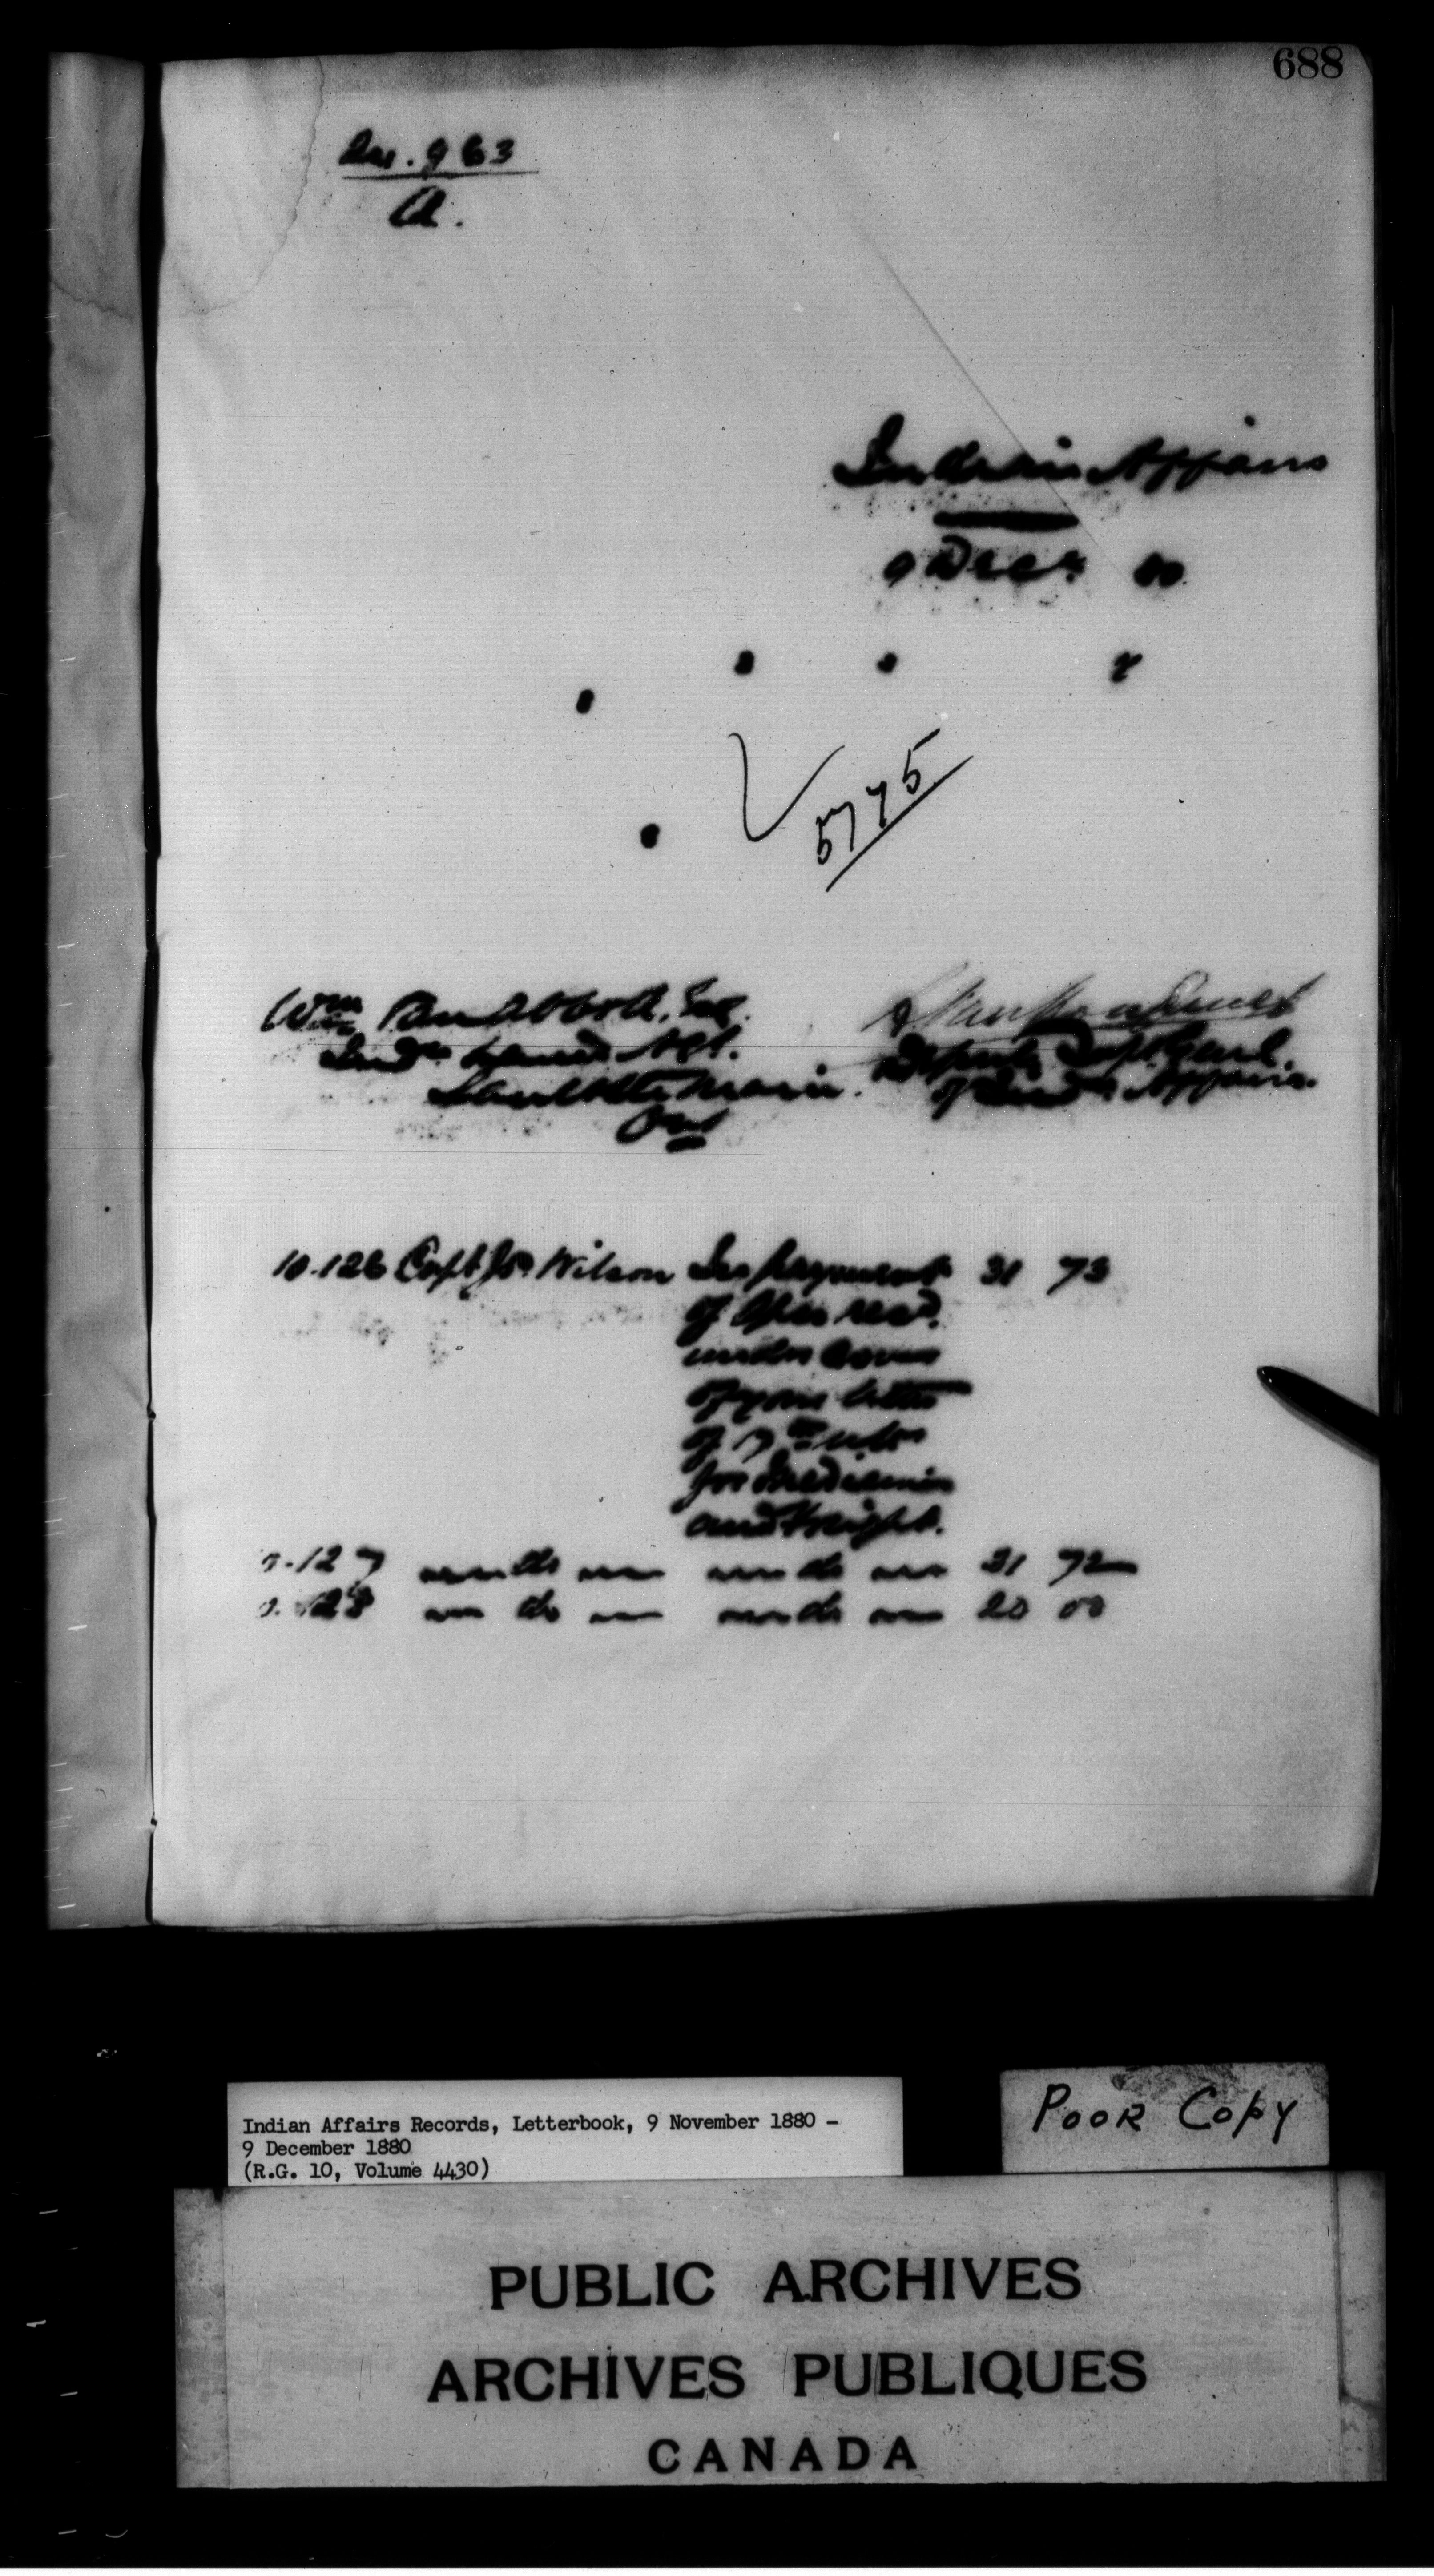 688
963
A.
Indian Affairs
9 Decr 80
5775
Wm Van Abbott, Esq.
Indn Land Agt.
Sault Ste Marie.
Ont
Deputy Supt Genl.
of Indn Affairs.
10.126 Capt Js. Wilson In payment 31 73
of a/cs recd.
under cover
of your letter
of 17th ulto
for Medicine
and freight.
127 do do 31 72
128 do do 20 00
Indian Affairs Records, Letterbook, 9 November 1880 -
9 December 1880
(R.G. 10, Volume 4430)
POOR COPY
PUBLIC ARCHIVES
ARCHIVES PUBLIQUES
CANADA